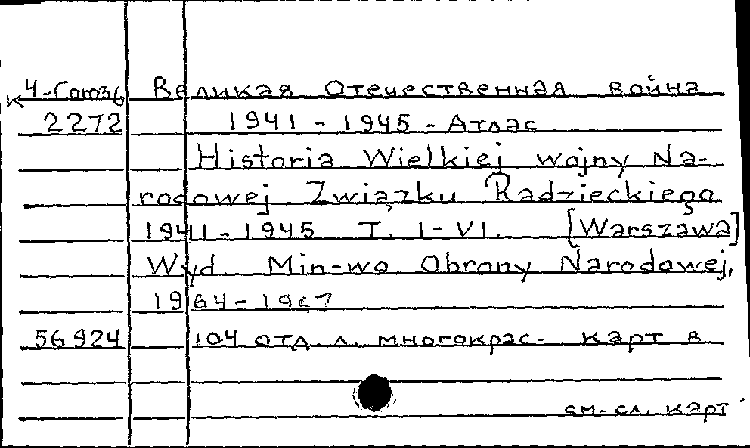 К 4-Союз6 Великая Отечественная война
2272 1941 - 1945 - Атлас
Historia Wielkiej wojny Na-
rodowej Związku Radzieckiego
1941 - 1945 T. I-VI. [Warszawa]
Wyd. Min-wo Obrony Narodowej,
1964 - 1967
56924 104 отд. л. многокрас- карт в
см. сл. карт